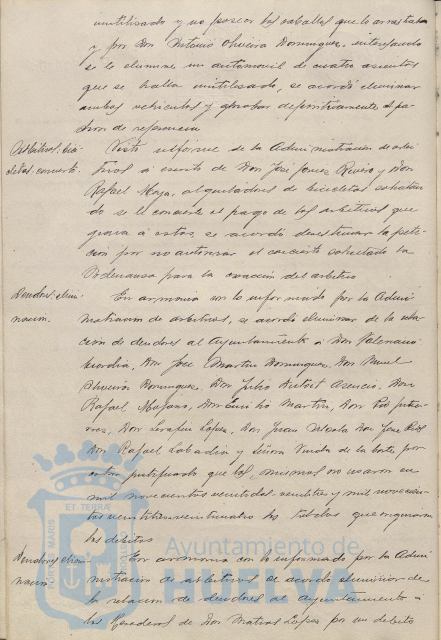 inutilizado y no poseer los caballos que lo arrastraban
y por Don Antonio Oliveira Dominguez, interesando
se le elimine un automovil de cuatro asientos
que se halla inutilizado, se acordó eliminar
ambos vehiculos y aprobar definitivamente el pa-
dron de referencia
Arbitrios: bici-
cletas, concierto.
Visto informe de la Administracion de arbi-
trios á escrito de Don José Ponce Rivero y Don
Rafael Moya, alquiladores de bicicletas solicitan-
do se le concierte el pago de los arbitrios que
grava á estas, se acordó desestimar la peti-
cion por no autorizar el concierto solicitado la
Ordenanza para la exaccion del arbitrio
Deudores: elimi-
nacion.
En armonia con lo informado por la Admi-
nistracion de arbitrios, se acordó eliminar de la rela-
cion de deudores al Ayuntamiento á Don
Don José Martin Dominguez, Don Manuel
Oliveira Dominguez, Don Julio Asencio, Don
Rafael Mojano, Don Emilio Martin, Don
Don Serafin Lopez, Don Juan Don José
Don Rafael y Señora Viuda de la Corte, por
estar justificado que los mismos no usaron en
mil novecientos veintidos-veintitres y mil novecien-
tos veintitres-veinticuatro los toldos que originaron
los debitos
Deudores elimi-
nacion
En armonia con lo informado por la Admi-
nistracion de arbitrios se acordó eliminar de
la relacion de deudores al Ayuntamiento á
los Herederos de Don Matias Lopez por un debito
PORTUS MARIS ET TERRAE
Ayuntamiento de
HUELVA